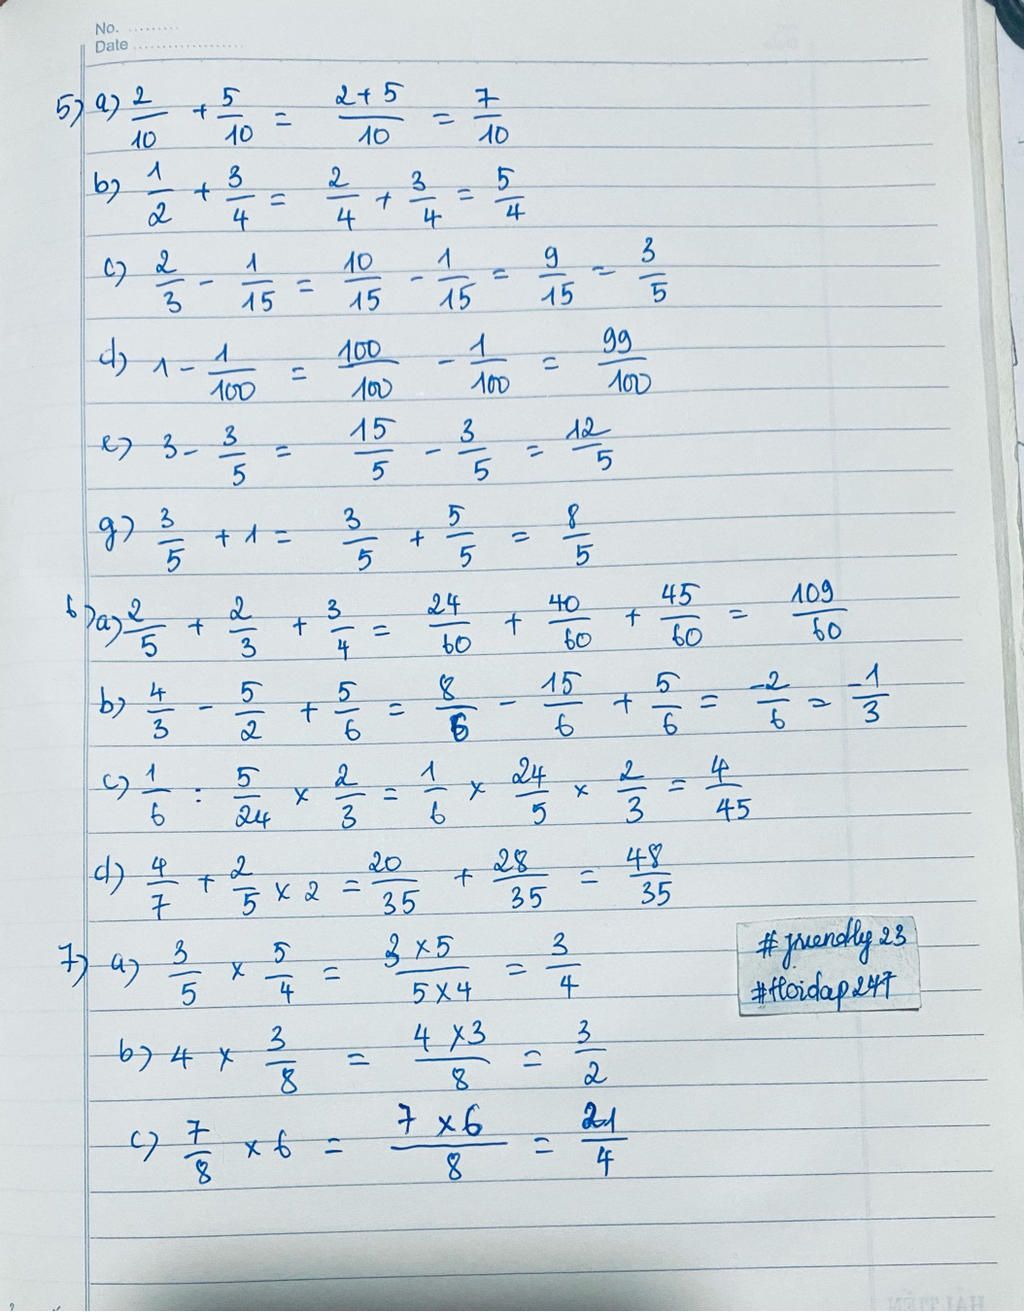 No. ..........
Date .....................
5) a) 2/10 + 5/10 = (2+5)/10 = 7/10
b) 1/2 + 3/4 = 2/4 + 3/4 = 5/4
c) 2/3 - 1/15 = 10/15 - 1/15 = 9/15 = 3/5
d) 1 - 1/100 = 100/100 - 1/100 = 99/100
e) 3 - 3/5 = 15/5 - 3/5 = 12/5
g) 3/5 + 1 = 3/5 + 5/5 = 8/5
6) a) 2/5 + 2/3 + 3/4 = 24/60 + 40/60 + 45/60 = 109/60
b) 4/3 - 5/2 + 5/6 = 8/6 - 15/6 + 5/6 = -2/6 = -1/3
c) 1/6 : 5/24 × 2/3 = 1/6 × 24/5 × 2/3 = 4/45
d) 4/7 + 2/5 × 2 = 20/35 + 28/35 = 48/35
7) a) 3/5 × 5/4 = (3×5)/(5×4) = 3/4
#friendly23
#Hoidap247
b) 4 × 3/8 = (4×3)/8 = 3/2
c) 7/8 × 6 = (7×6)/8 = 21/4